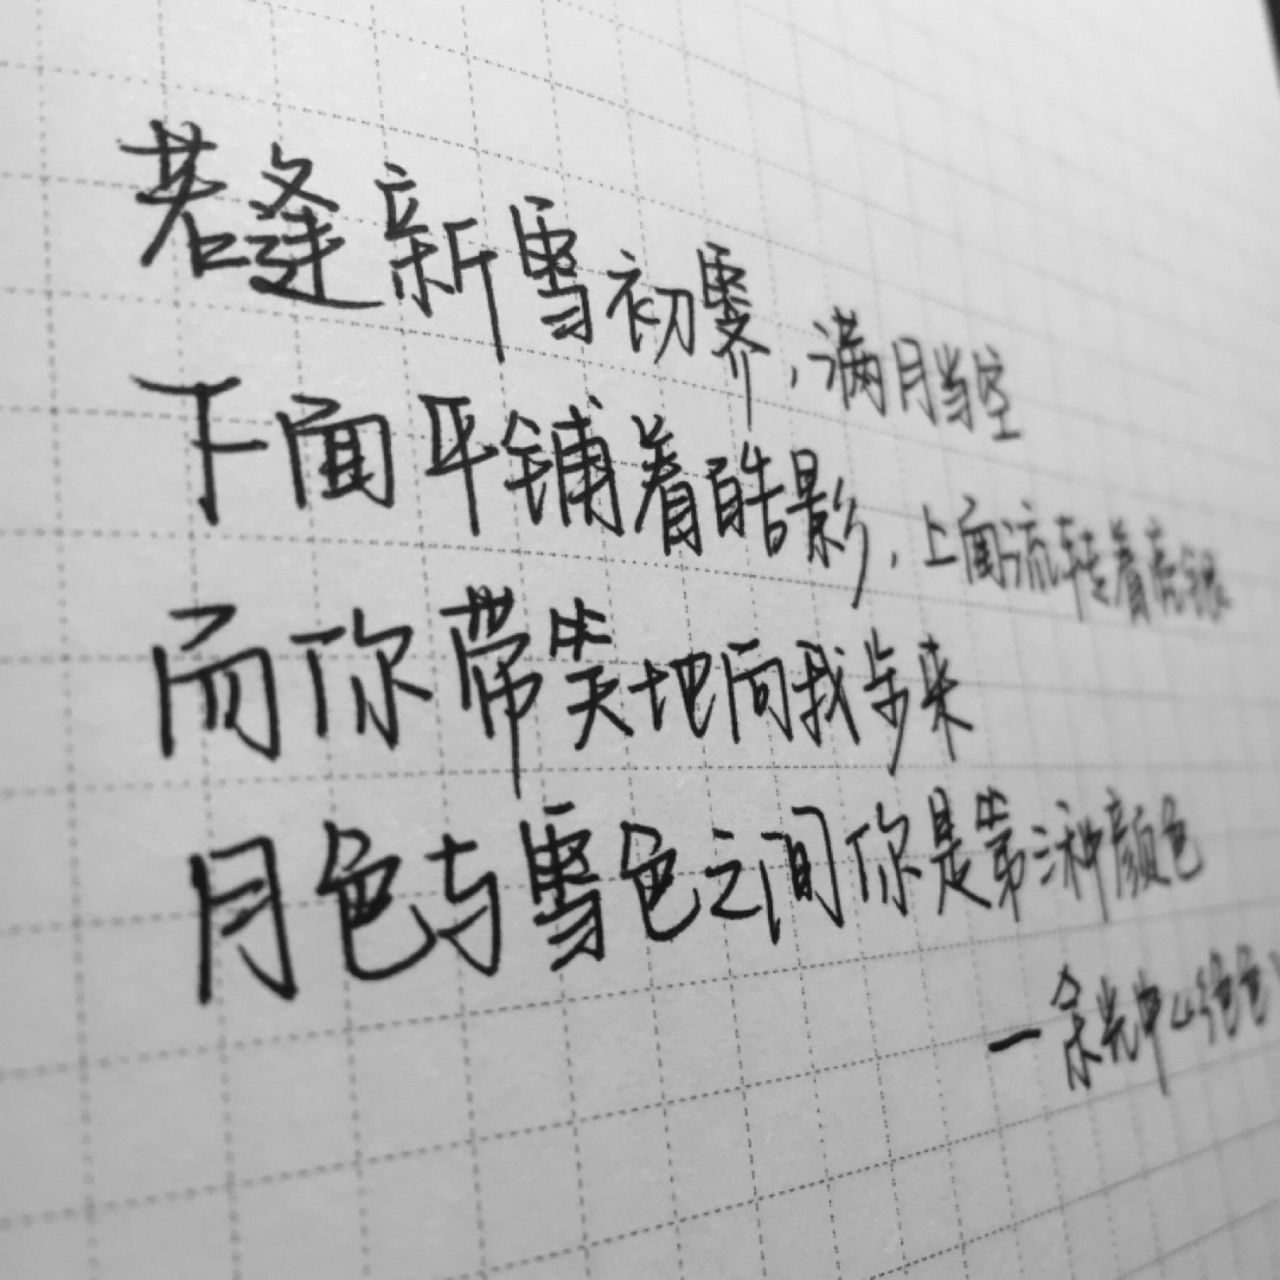 若逢新雪初霁,满月当空
下面平铺着皓影,上面流转着亮银
而你带笑地向我步来
月色与雪色之间你是第三种颜色
—余光中《绝色》